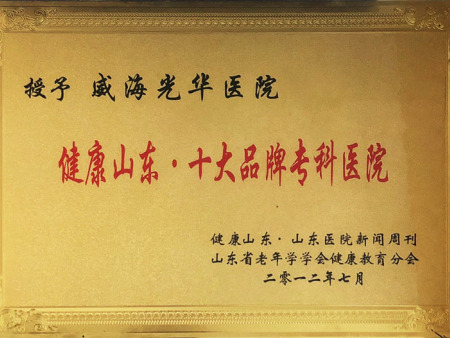 授予 威海光华医院
健康山东·十大品牌专科医院
健康山东·山东医院新闻周刊
山东省老年学学会健康教育分会
二零一二年七月